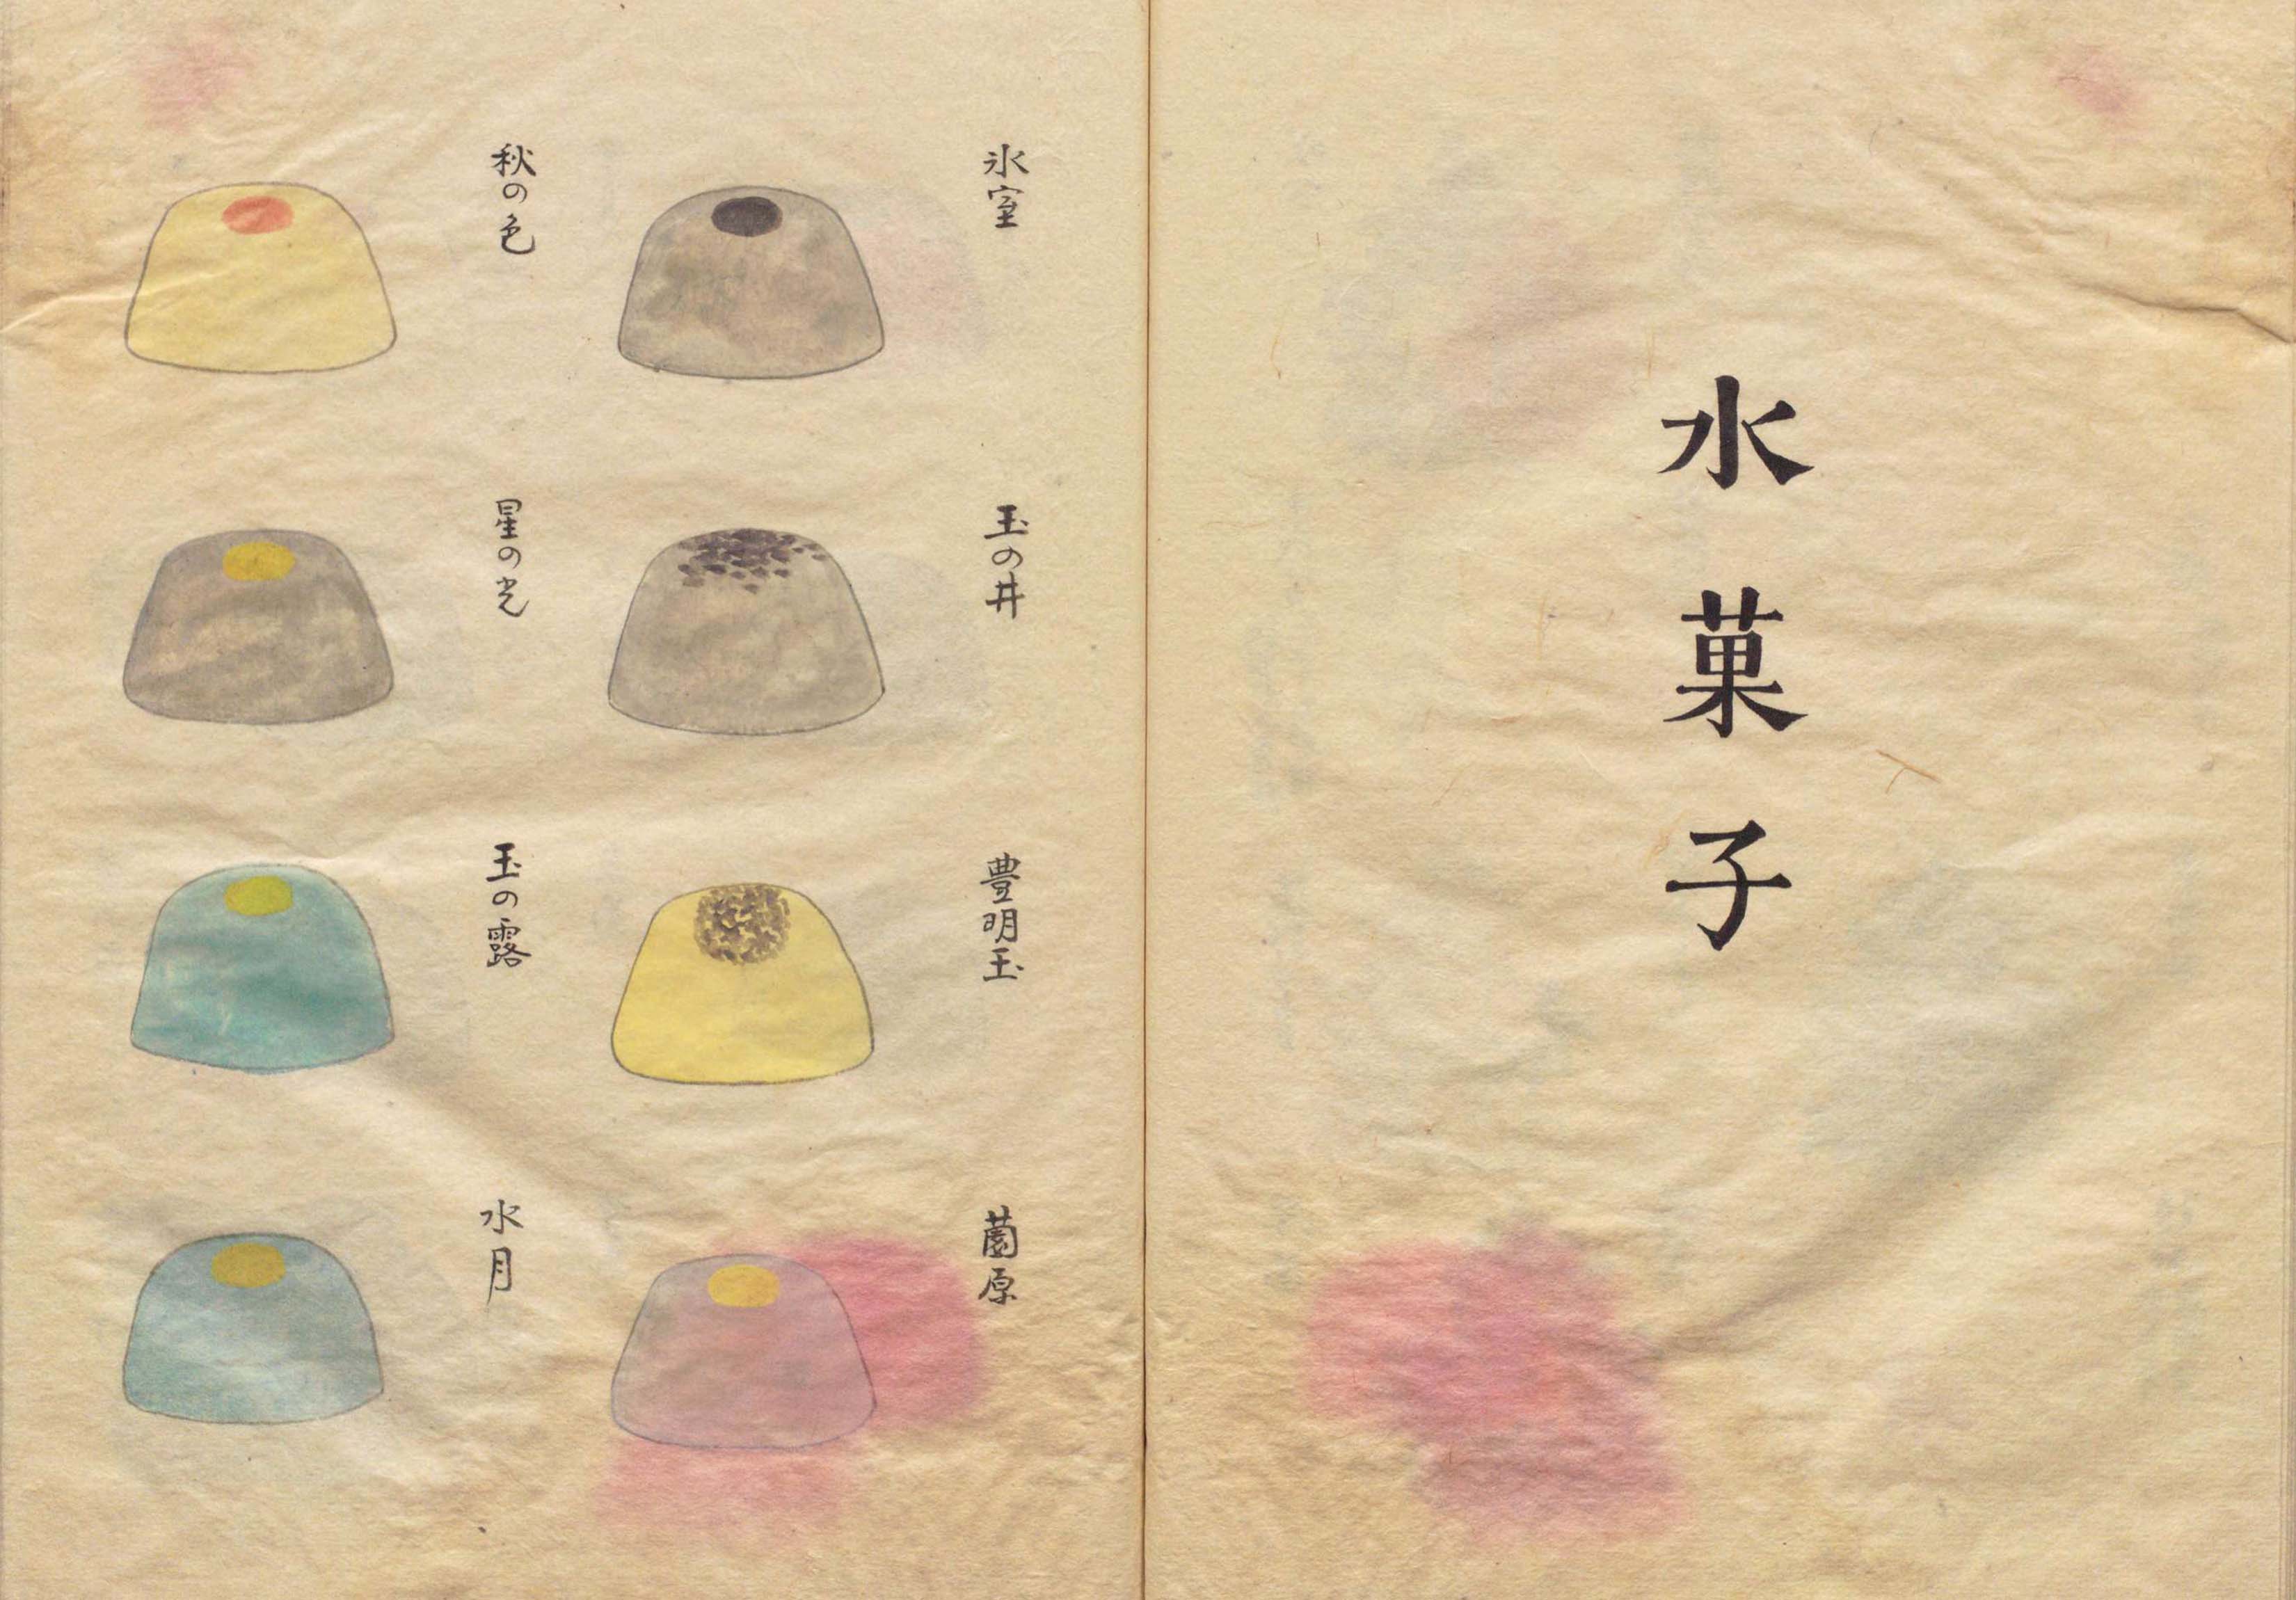 水菓子
氷室
玉の井
豊明玉
薗原
秋の色
星の光
玉の露
水月